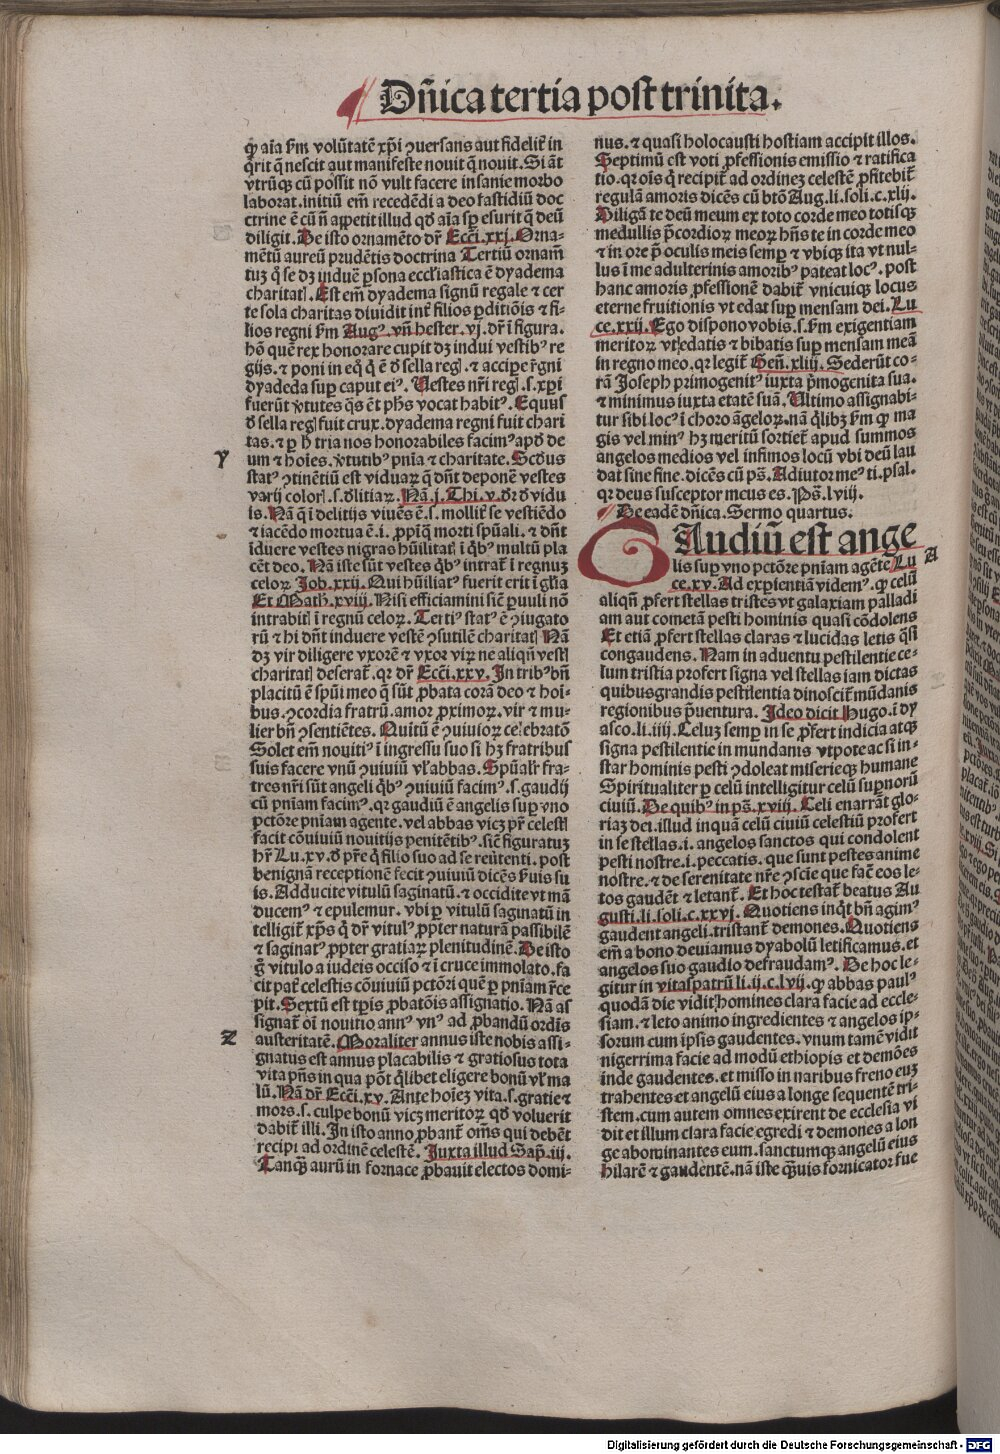 Dñica tertia post trinita.
ꝙ aĩa ẜm volũtatẽ xp̃i ꝯuersans aut fidelit̃ in
q̃rit q̃ nescit aut manifeste nouit q̃ nouit. Si aũt
vtrũqꝫ cũ possit nõ vult facere insanie morbo
laborat. initiũ em̃ recedẽdi a deo fastidiũ doc
ctrine ẽ cũ ñ appetit illud qd̃ aĩa sp̃ esurit q̃ deũ
diligit. De isto ornamẽto dr̃ Ecc̃i. xxj. Orna-
mẽtũ aureũ prudẽtis doctrina Tertiũ ornam̃
tuꝫ q̃ se dꝫ induẽ ꝑsona eccl̃iastica ẽ dyadema
charitatꝭ. Est em̃ dyadema signũ regale ⁊ cer
te sola charitas diuidit int̃ filios ꝑditiõis ⁊ fi-
lios regni ẜm Augꝰ. vñ hester. vj. dr̃ ĩ figura.
hõ quẽ rex honorare cupit dꝫ indui vestibꝰ re
gijs. ⁊ poni in eq̃ q̃ ẽ d̃ sella regꝭ. ⁊ accipe r̃gni
dyadeda suꝑ caput eiꝰ. Vestes nr̃i regꝭ .s. xp̃i
fuerũt v̓tutes q̃s ẽt ph̃s vocat habitꝰ. Equus
d̃ sella regꝭ fuit crux. dyadema regni fuit chari
tas. ⁊ ꝑ h̃ tria nos honorabiles facimꝰ apd̃ de
um ⁊ hoĩes. v̓tutibꝰ pnĩa ⁊ charitate. Scd̃us
statꝰ ꝯtinẽtiũ est viduaꝝ q̃ dñt deponẽ vestes
varij colorꝭ .s. d̓litiaꝝ. Nã .j. Thi. v. dr̃ d̃ vidu
is. Nã q̃ ĩ delitijs viuẽs ẽ .s. mollit̃ se vestiẽdo
⁊ iacẽdo mortua ẽ .i. ꝓpĩq̃ morti sp̃uali. ⁊ dñt
ĩduere vestes nigras hũilitatꝭ ĩ q̃bꝰ multũ pla
cẽt deo. Nã iste sũt vestes q̃bꝰ intrat̃ ĩ regnuꝫ
celoꝝ. Job. xxij. Qui hũiliatꝰ fuerit erit ĩ gl̃ia
Et Math. xviij. Nisi efficiamini sic̃ ꝑuuli nõ
intrabitꝭ ĩ regnũ celoꝝ. Tertiꝰ statꝰ ẽ ꝯiugato
rũ ⁊ hi dñt induere vestẽ ꝯsutilẽ charitatꝭ Nã
dꝫ vir diligere vxorẽ ⁊ vxor viꝝ ne aliqñ vestꝭ
charitatꝭ deserat̃. qꝛ dr̃ Ecc̃i. xxv. In tribꝰ bñ
placitũ ẽ sp̃ui meo q̃ sũt ꝓbata corã deo ⁊ hoĩ-
bus. ꝯcordia fratrũ. amor ꝓximoꝝ. vir ⁊ mu-
lier bñ ꝯsentiẽtes. Quitũ ẽ ꝯuiuioꝝ celebratõ
Solet em̃ nouitiꝰ ĩ ingressu suo si hꝫ fratribus
suis facere vnũ ꝯuiuiũ vl̓ abbas. Sp̃ual̓r fra-
tres nr̃i sũt angeli q̃bꝰ ꝯuiuiũ facimꝰ .s. gaudij
cũ pñiam facimꝰ. qꝛ gaudiũ ẽ angelis suꝑ vno
pctõre pñiam agente. vel abbas viꝫ pr̃ celestꝭ
facit cõuiuiũ nouitijs penitẽtibꝰ. sic̃ figuratuꝫ
hr̃ Lu. xv. d̃ pr̃e q̃ filio suo ad se reũtenti. post
benignã receptionẽ fecit ꝯuiuiũ dicẽs ẜuis su
is. Adducite vitulũ saginatũ. ⁊ occidite vt mã
ducemꝰ ⁊ epulemur. vbi ꝑ vitulũ saginatũ in
telligit̃ xp̃s q̃ dr̃ vitulꝰ ꝓpter naturã passibilẽ
⁊ saginatꝰ ꝓpter gratiaꝝ plenitudinẽ. De isto
g̃ vitulo a iudeis occiso ⁊ ĩ cruce immolato. fa
cit pat̃ celestis cõuiuiũ pctõri quẽ ꝑ pnĩam r̃ce
pit. Sextũ est tp̃is ꝓbatõis assignatio. Nã as
signat̃ oĩ nouitio annꝰ vnꝰ ad ꝓbandũ ordĩs
austeritatẽ. Moraliter annus iste nobis assi-
gnatus est annus placabilis ⁊ gratiosus tota
vita pñs in qua põt q̃libet eligere bonũ vl̓ ma
lũ. Nã dr̃ Ecc̃i. xv. Ante hoĩeꝫ vita .s. gratie ⁊
mors .s. culpe bonũ viꝫ meritoꝝ qd̃ voluerit
dabit̃ illi. In isto anno ꝓbant̃ oẽs qui debẽt
recipi ad ordinẽ celestẽ. Juxta illud Sap̃. iij.
Tanqꝫ aurũ in fornace ꝓbauit electos domi-
Y
Z
nus. ⁊ quasi holocausti hostiam accipit illos.
Septimũ est voti ꝓfessionis emissio ⁊ ratifica
tio. qꝛ oĩs q̃ recipit̃ ad ordineꝫ celestẽ ꝓfitebit̃
regulã amoris dicẽs cũ btõ Aug. li. soli. c. xlij.
Diligã te deũ meum ex toto corde meo totisqꝫ
medullis p̃cordioꝝ meoꝝ hñs te in corde meo
⁊ in ore p̃ oculis meis semꝑ ⁊ vbiqꝫ ita vt nul-
lus ĩ me adulterinis amoribꝰ pateat locꝰ. post
hanc amoris ꝓfessionẽ dabit̃ vnicuiqꝫ locus
eterne fruitionis vt edat suꝑ mensam dei. Lu
ce. xxij. Ego dispono vobis .s. ẜm exigentiam
meritoꝝ vt edatis ⁊ bibatis suꝑ mensam meã
in regno meo. qꝛ legit̃ Geñ. xliij. Sederũt co-
rã Joseph primogenitꝰ iuxta p̃mogenita sua.
⁊ minimus iuxta etatẽ suã. Ultimo assignabi-
tur sibi locꝰ ĩ choro ãgeloꝝ. nã q̃libꝫ ẜm qꝫ ma
gis vel minꝰ hꝫ meritũ sortiet̃ apud summos
angelos medios vel infimos locũ vbi deũ lau
dat̃ sine fine. dicẽs cũ ps̃. Adiutor meꝰ ti. psal.
qꝛ deus susceptor meus es. Ps̃. lviij.
De eadẽ dñica. Sermo quartus.
GAudiũ est ange
lis suꝑ vno pctõre pñiam agẽte Lu
ce. xv. Ad exꝑientiã videmꝰ. ꝙ celũ
A
aliqñ ꝓfert stellas tristes vt galaxiam palladi
am aut cometã pesti hominis quasi cõdolens
Et etiã ꝓfert stellas claras ⁊ lucidas letis q̃si
congaudens. Nam in aduentu pestilentie ce-
lum tristia profert signa vel stellas iam dictas
quibus grandis pestilentia dinoscit̃ mũdanis
regionibus p̃uentura. Ideo dicit Hugo. ĩ dy
asco. li. iiij. Celuꝫ semꝑ in se ꝓfert indicia atqꝫ
signa pestilentie in mundanis vtpote ac si in-
star hominis pesti ꝯdoleat miserieqꝫ humane
Spiritualiter ꝑ celũ intelligitur celũ supnorũ
ciuiũ. De quibꝰ in ps̃. xviij. Celi enarrãt glo-
riaꝫ dei. illud inquã celũ ciuiũ celestiũ profert
in se stellas .i. angelos sanctos qui condolent
pesti nostre .i. peccatis. que sunt pestes anime
nostre. ⁊ de serenitate nr̃e ꝯscie que facẽt eos le-
tos gaudẽt ⁊ letant̃. Et hoc testat̃ beatus Au
gusti. li. soli. c. xxvj. Quotiens inq̃t bñ agimꝰ
gaudent angeli. tristant̃ demones. Quotiens
em̃ a bono deuiamus dyabolũ letificamus. et
angelos suo gaudio defraudamꝰ. De hoc le-
gitur in vitaspatrũ li. ij. c. lvij. ꝙ abbas paulꝰ
quodã die vidit homines clara facie ad eccle-
siam. ⁊ leto animo ingredientes ⁊ angelos ip-
sorum cum ipsis gaudentes. vnum tamẽ vidit
nigerrima facie ad modũ ethiopis et demões
inde gaudentes. et misso in naribus freno euꝫ
trahentes et angelũ eius a longe sequentẽ tri-
stem. cum autem omnes exirent de ecclesia vi
dit et illum clara facie egredi ⁊ demones a lon
ge abominantes eum. sanctumqꝫ angelũ eius
hilarẽ ⁊ gaudentẽ. nã iste q̃uis fornicator fue
Digitalisierung gefördert durch die Deutsche Forschungsgemeinschaft - DFG